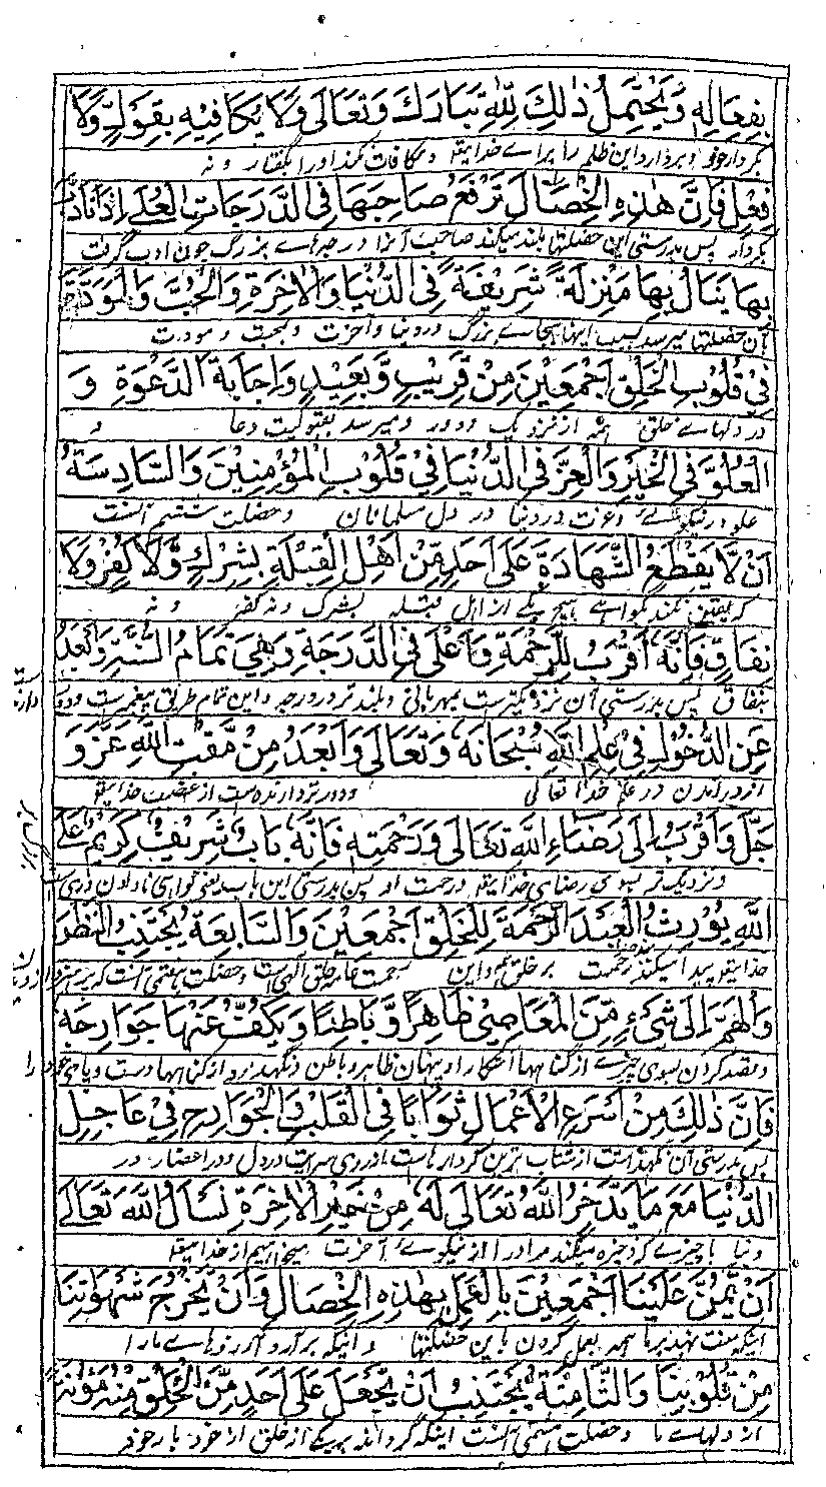 بِفِعَالِهٖ وَيَحْتَمِلُ ذٰلِكَ لِلّٰهِ تَبَارَكَ وَتَعَالٰى وَلَا يُكَافِيْهِ بِقَوْلٍ وَّلَا
بکردار خود و بردارد این ظلم را براے خدایتعا و مکافات نکند او را بگفتار و نه
فِعْلٍ فَاِنَّ هٰذِهِ الْخِصَالَ تَرْفَعُ صَاحِبَهَا فِي الدَّرَجَاتِ الْعُلٰے اِذَا تَأَدَّبَ
بکردار پس بدرستی این خصلتها بلند میکند صاحب آنرا در درجهاے بزرگ چون ادب گرفت
بِهَا يَنَالُ بِهَا مَنْزِلَةً شَرِيْفَةً فِي الدُّنْيَا وَالْاٰخِرَةِ وَالْحُبَّ وَالْمَوَدَّةَ
آن خصلتها میرسد بسبب اینها بجاے بزرگ در دنیا و آخرت و بمحبت و مودت
فِيْ قُلُوْبِ الْخَلْقِ اَجْمَعِيْنَ مِنْ قَرِيْبٍ وَّبَعِيْدٍ وَاِجَابَةَ الدَّعْوَةِ وَ
در دلهاے خلق همه از نزدیک و دور و میرسد بقبولیت دعا و
الْعُلُوَّ فِي الْخَيْرِ وَالْعِزَّ فِي الدُّنْيَا فِيْ قُلُوْبِ الْمُؤْمِنِيْنَ وَالسَّادِسَةُ
علو در نیکوئے و عزت در دنیا در دل مسلمانان و خصلت ششم آنست
اَنْ لَّا يَقْطَعَ الشَّهَادَةَ عَلٰى اَحَدٍ مِّنْ اَهْلِ الْقِبْلَةِ بِشِرْكٍ وَّلَا كُفْرٍ وَلَا
که یقین نکند گواہے بہیچ یکے از اہل قبله بشرک و نه کفر و نه
نِفَاقٍ فَاِنَّهٗ اَقْرَبُ لِلرَّحْمَةِ وَاَعْلٰى فِي الدَّرَجَةِ وَهِيَ تَمَامُ السُّنَّةِ وَاَبْعَدُ
بنفاق پس بدرستی آن نزدیکترست بمهربانی و بلندتر در درجه و این تمام طریق پیغمبرست و دور
عَنِ الدُّخُوْلِ فِيْ عِلْمِ اللّٰهِ سُبْحَانَهٗ وَتَعَالٰى وَاَبْعَدُ مِنْ مَّقْتِ اللّٰهِ عَزَّ وَ
از درآمدن در علم خداتعالی و دورتر دارنده ست از غضب خدایتعا
جَلَّ وَاَقْرَبُ اِلٰى رِضَاءِ اللّٰهِ تَعَالٰى وَرَحْمَتِهٖ فَاِنَّهٗ بَابٌ شَرِيْفٌ كَرِيْمٌ عَلَے
و نزدیک تر بسوی رضاهی خدایتعا و رحمت او پس بدرستی این باب یعنی گواهی نادادن
اللّٰهِ يُوْرِثُ الْعَبْدَ الرَّحْمَةَ لِلْخَلْقِ اَجْمَعِيْنَ وَالسَّابِعَةُ يَجْتَنِبُ النَّظَرَ
خدایتعا پیدا میکند رحمت بر خلق همه و این رحمت عامه خلق الهی است و خصلت هفتمی آنست که پرهیز
وَالْهَمَّ اِلٰى شَيْءٍ مِّنَ الْمَعَاصِيْ ظَاهِرًا وَّبَاطِنًا وَيَكُفُّ عَنْهَا جَوَارِحَهٗ
و قصد کردن بسوی چیزے از گناهها آشکارا و پنهان ظاهر و باطن و نگهدارد از گناهها دست و پای خود را
فَاِنَّ ذٰلِكَ مِنْ اَسْرَعِ الْاَعْمَالِ ثَوَابًا فِي الْقَلْبِ وَالْجَوَارِحِ فِيْ عَاجِلِ
پس بدرستی آن نگهداشت از شتاب ترین کردارهاست ازروی در دل و در اعضا در
الدُّنْيَا مَعَ مَا يَدَّخِرُ اللّٰهُ تَعَالٰى لَهٗ مِنْ خَيْرِ الْاٰخِرَةِ نَسْأَلُ اللّٰهَ تَعَالٰے
دنیا با چیزے که ذخیره میکند مر او را از نیکوے آخرت میخواهیم از خدایتعا
اَنْ يَّمُنَّ عَلَيْنَا اَجْمَعِيْنَ بِالْعَمَلِ بِهٰذِهِ الْخِصَالِ وَاَنْ يُّخْرِجَ شَهَوَاتِنَا
اینکه منت نهد بر ما همه بعمل کردن باین خصلتها و اینکه برآرد آرزوهاے ما را
مِنْ قُلُوْبِنَا وَالثَّامِنَةُ يَجْتَنِبُ اَنْ يَّجْعَلَ عَلٰى اَحَدٍ مِّنَ الْخَلْقِ مِنْهُ مُؤْنَةً
از دلهاے ما و خصلت هشتمی آنست اینکه گرداند بر یکے از خلق از خود بار خود